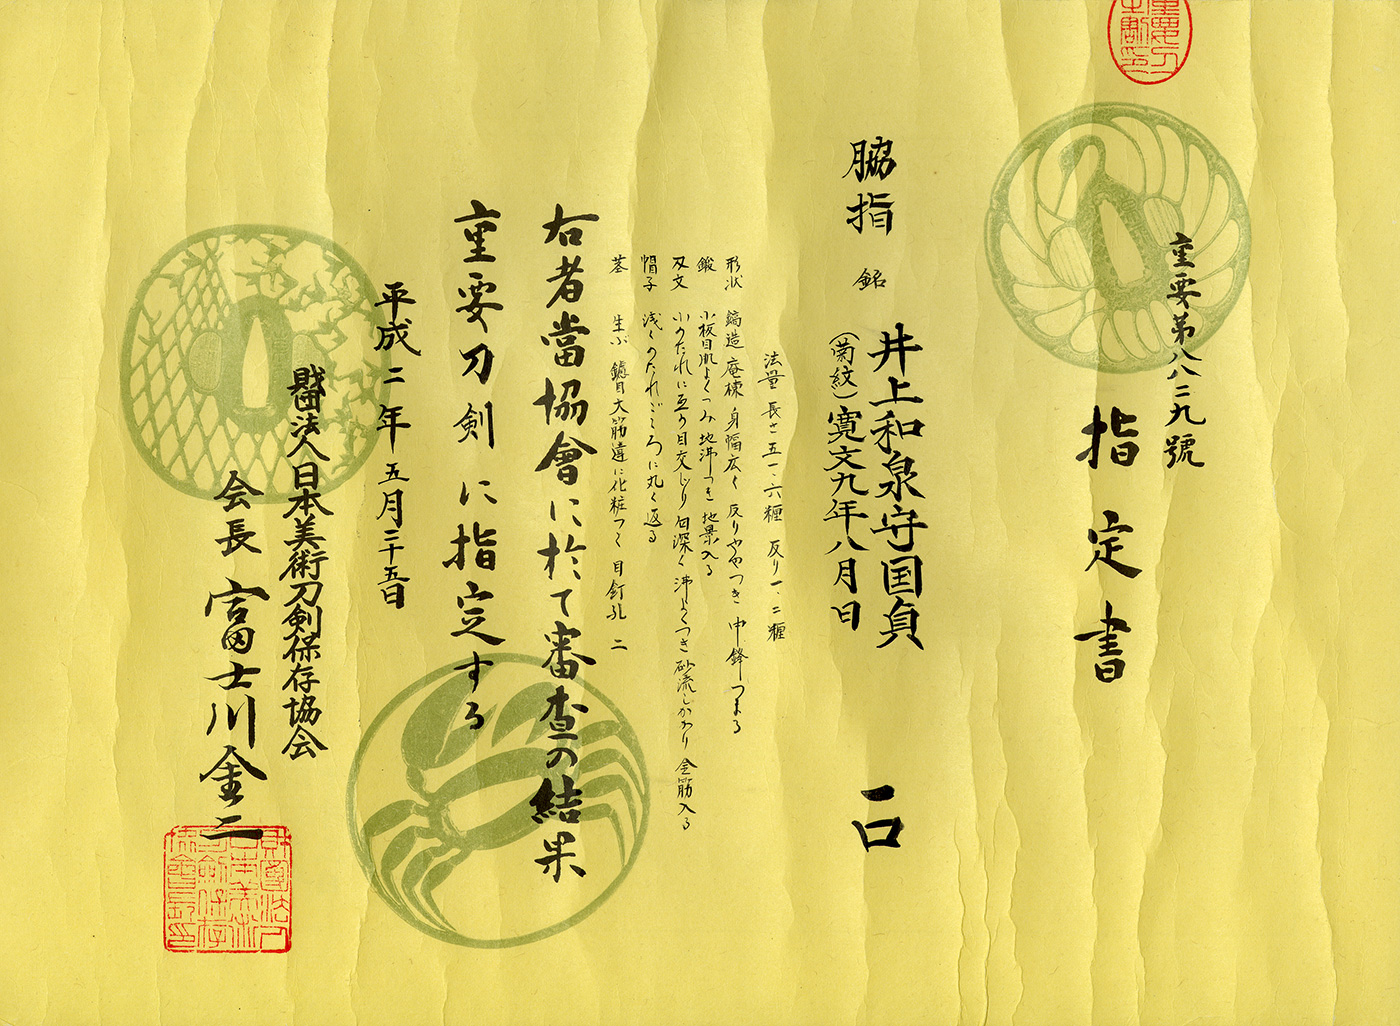 重要第八八二九號
指定書
脇指 銘 井上和泉守国貞
(菊紋)寛文九年八月日
一口
法量 長さ五一、六糎 反り一、二糎
形状 鎬造 庵棟 身幅広く 反りややつき 中鋒つまる
鍛 小板目肌よくつみ 地沸つき 地景入る
刃文 小のたれに互り目交じり 匂深く 沸よくつき 砂流しかかり 金筋入る
帽子 浅くのたれごころに丸く返る
茎 生ぶ 鑢目大筋違に化粧つく 目釘孔 二
右者當協會に於て審査の結果
重要刀剣に指定する
平成二年五月二十五日
財団法人日本美術刀剣保存協会
会長 富士川金二